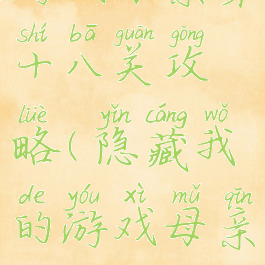 shí bā guān gōng
十八关攻
lüè yǐn cáng wǒ
略(隐藏我
de yóu xì mǔ qīn
的游戏母亲